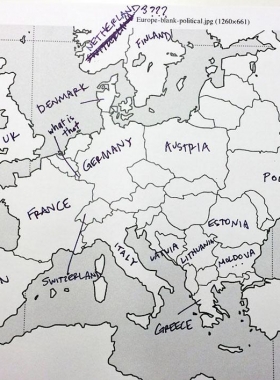 NETHERLAND????
Europe-blank-political.jpg (1260x661)
FINLAND
DENMARK
what is
that
UK
GERMANY
AUSTRIA
PO
FRANCE
ESTONIA
ITALY
LATVIA
LITHUANIA
MOLDOVA
...
SWITZERLAND
GREECE
N